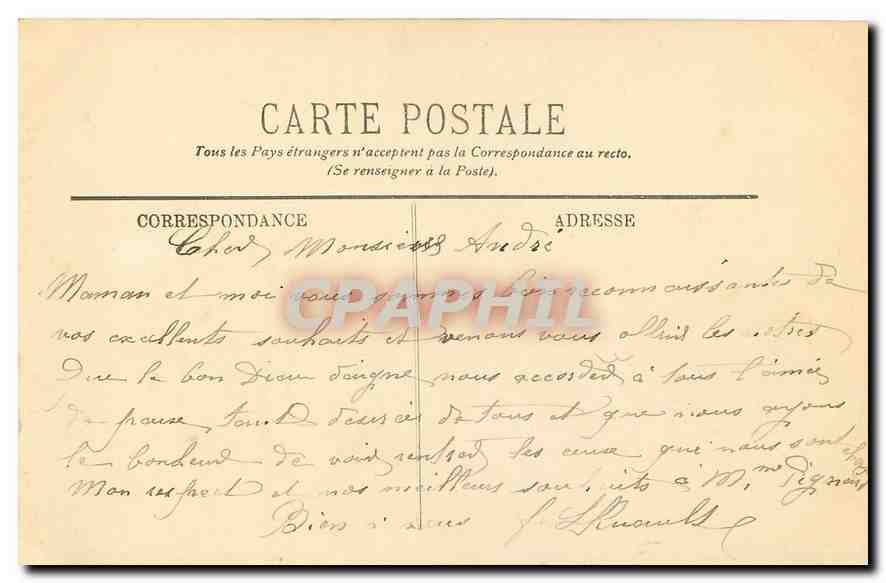 CARTE POSTALE
Tous les Pays étrangers n'acceptent pas la Correspondance au recto.
(Se renseigner à la Poste).
CORRESPONDANCE ADRESSE
Cher Monsieur André
Maman et moi vous sommes bien reconnaissantes de
vos excellents souhaits et venons vous offrir les notres
Que le bon Dieu daigne nous accorder à tous l'année
de tant desirée de tous et que nous ayons
le bonheur de voir rentrer les ceux que nous sont chers
Mon respect et nos meilleurs souhaits à Mme
Bien à vous
CPAPHIL